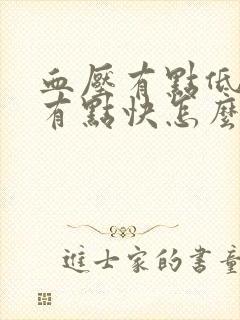 血壓有點低
有點快怎麼
進士家的書童